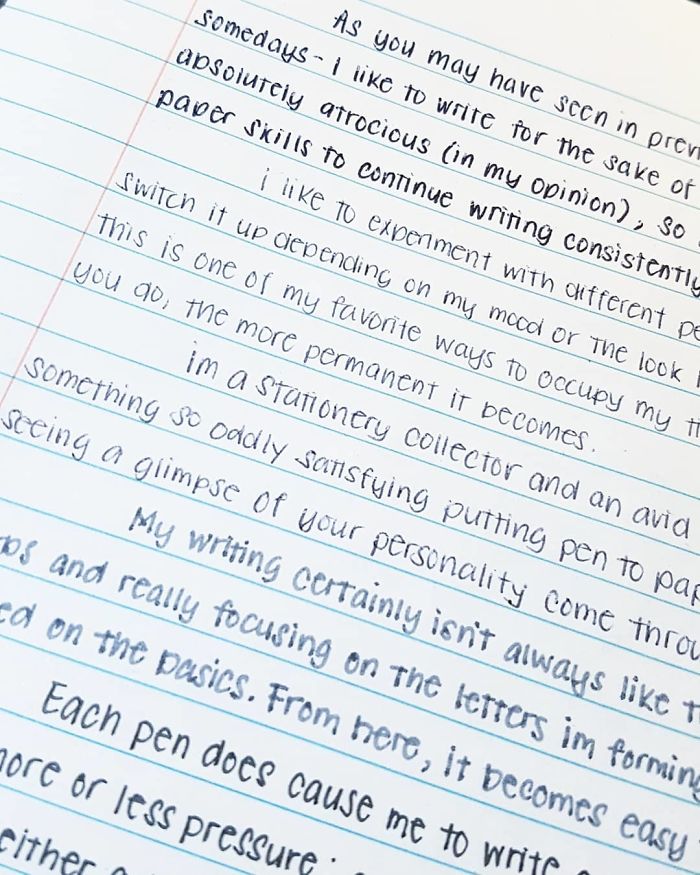 As you may have seen in prev
somedays - I like to write for the sake of
absolutely atrocious (in my opinion), so
paper skills to continue writing consistently
i like to experiment with different pe
switch it up depending on my mood or the look
this is one of my favorite ways to occupy my ti
you do, the more permanent it becomes.
im a stationery collector and an avid
something so oddly satisfying putting pen to pap
seeing a glimpse of your personality come throu
My writing certainly isn't always like t
ps and really focusing on the letters im forming
ed on the basics. From here, it becomes easy
Each pen does cause me to write
more or less pressure;
either